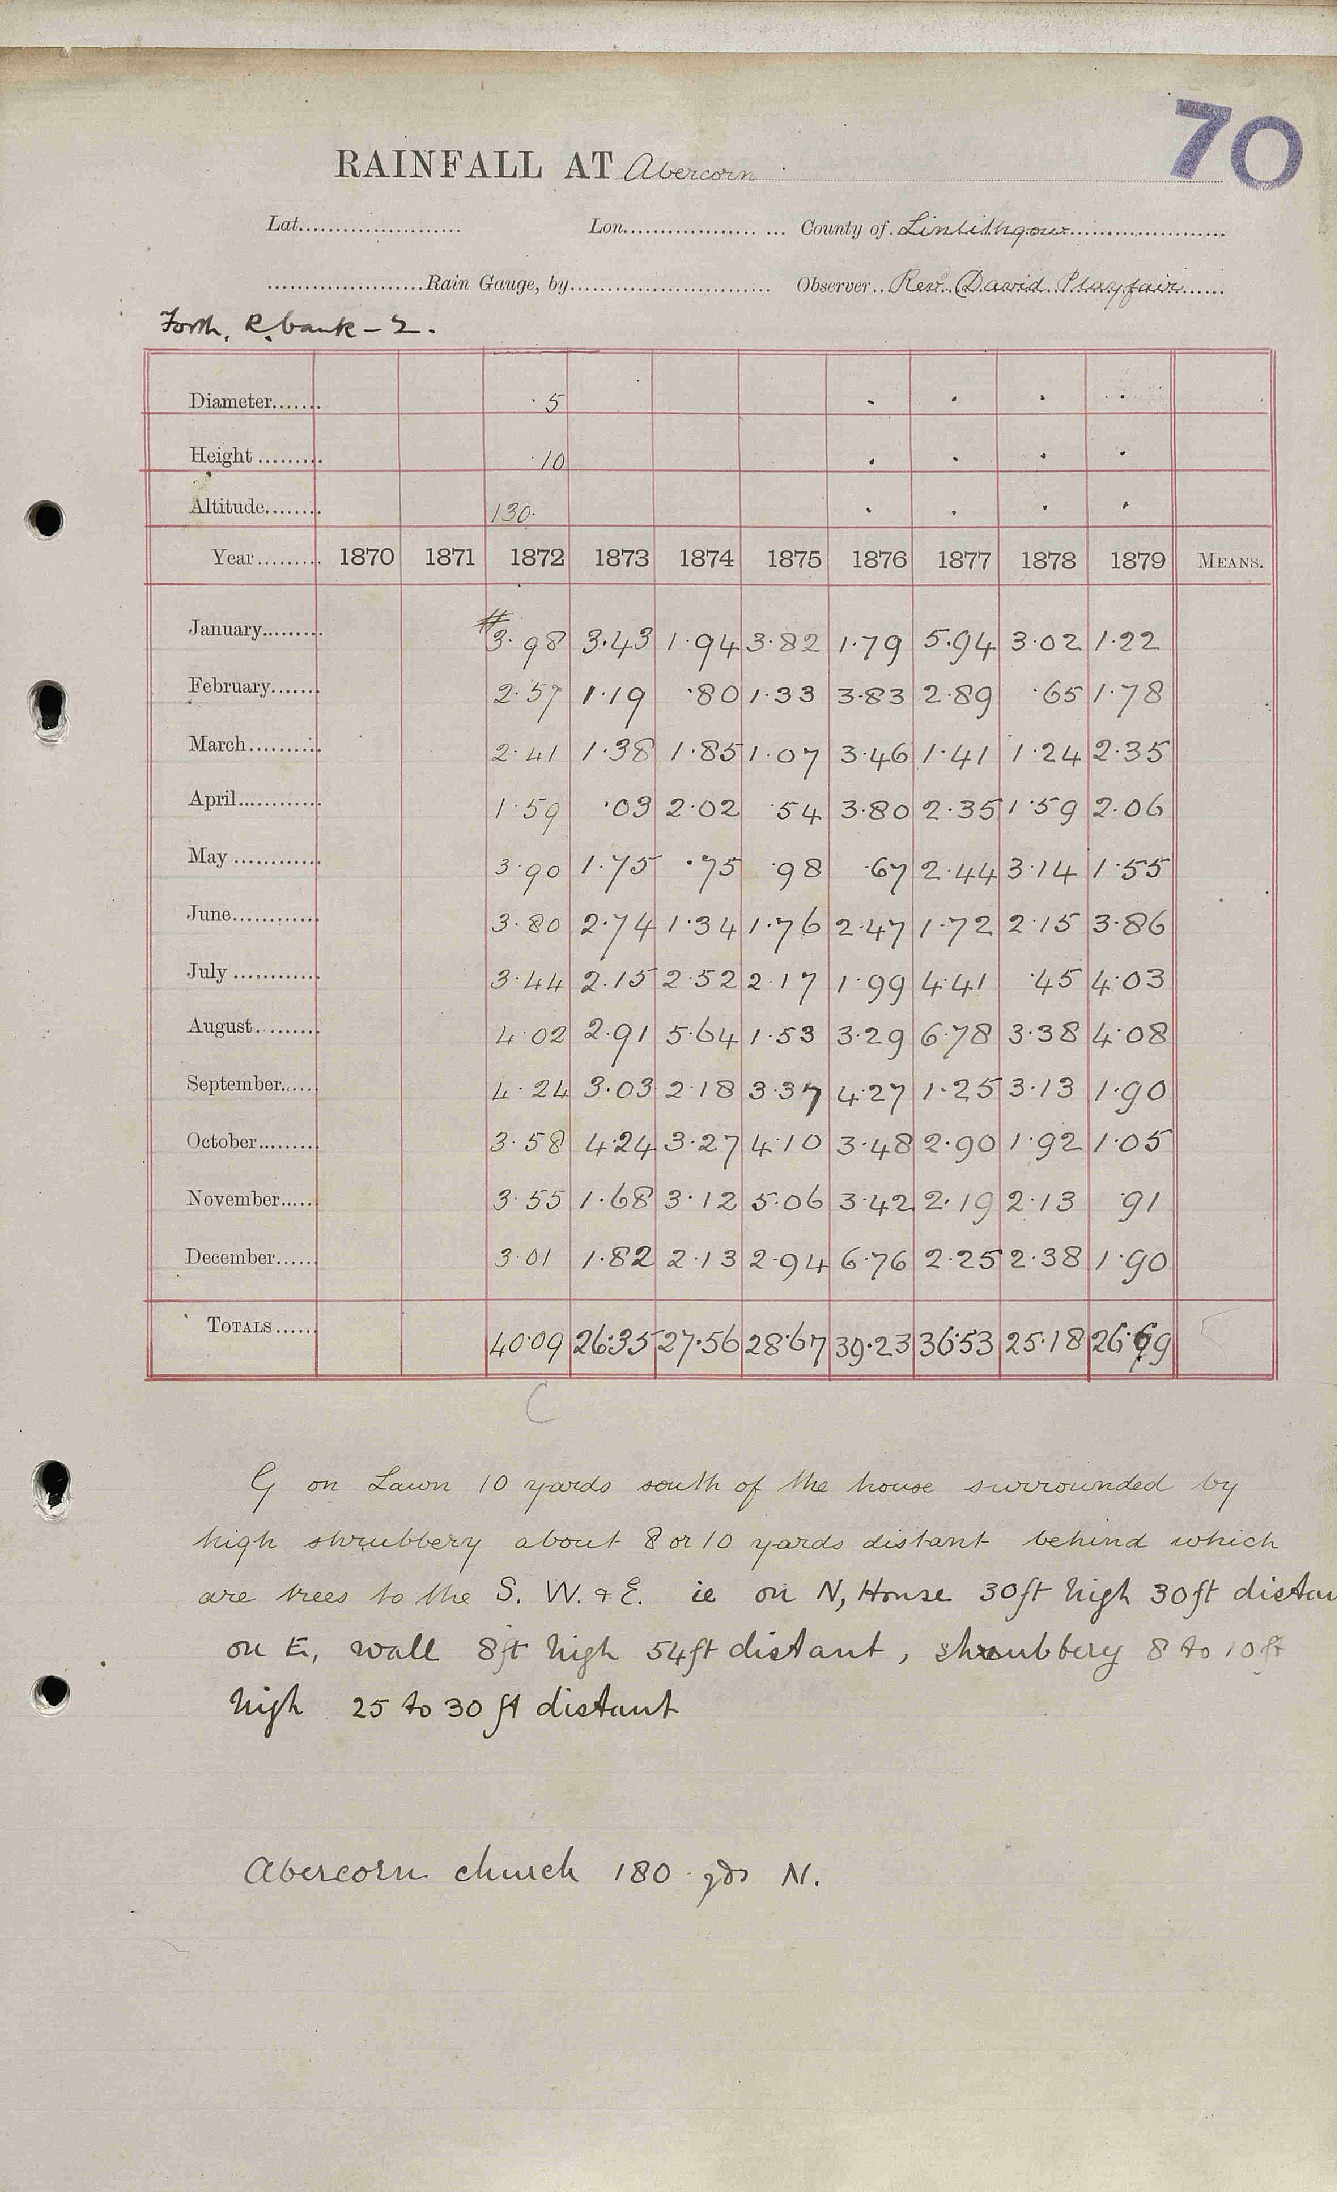 70
RAINFALL AT Abercorn
Lat. Lon. County of Linlithgow
Rain Gauge, by Observer Rev. David Playfair
Forth, R. bank - 2.
Diameter 5
Height 10
Altitude 130
Year 1870 1871 1872 1873 1874 1875 1876 1877 1878 1879 MEANS.
January # 3.98 3.43 1.94 3.82 1.79 5.94 3.02 1.22
February 2.57 1.19 .80 1.33 3.83 2.89 .65 1.78
March 2.41 1.38 1.85 1.07 3.46 1.41 1.24 2.35
April 1.59 .03 2.02 .54 3.80 2.35 1.59 2.06
May 3.90 1.75 .75 .98 .67 2.44 3.14 1.55
June 3.80 2.74 1.34 1.76 2.47 1.72 2.15 3.86
July 3.44 2.15 2.52 2.17 1.99 4.41 .45 4.03
August 4.02 2.91 5.64 1.53 3.29 6.78 3.38 4.08
September 4.24 3.03 2.18 3.37 4.27 1.25 3.13 1.90
October 3.58 4.24 3.27 4.10 3.48 2.90 1.92 1.05
November 3.55 1.68 3.12 5.06 3.42 2.19 2.13 .91
December 3.01 1.82 2.13 2.94 6.76 2.25 2.38 1.90
TOTALS 40.09 26.35 27.56 28.67 39.23 36.53 25.18 26.69
C
G on Lawn 10 yards south of the house surrounded by
high shrubbery about 8 or 10 yards distant behind which
are trees to the S. W. & E. ie on N, House 30ft high 30ft distan
on E, wall 8ft high 54ft distant, shrubbery 8 to 10 ft
high 25 to 30 ft distant
Abercorn church 180 yds N.